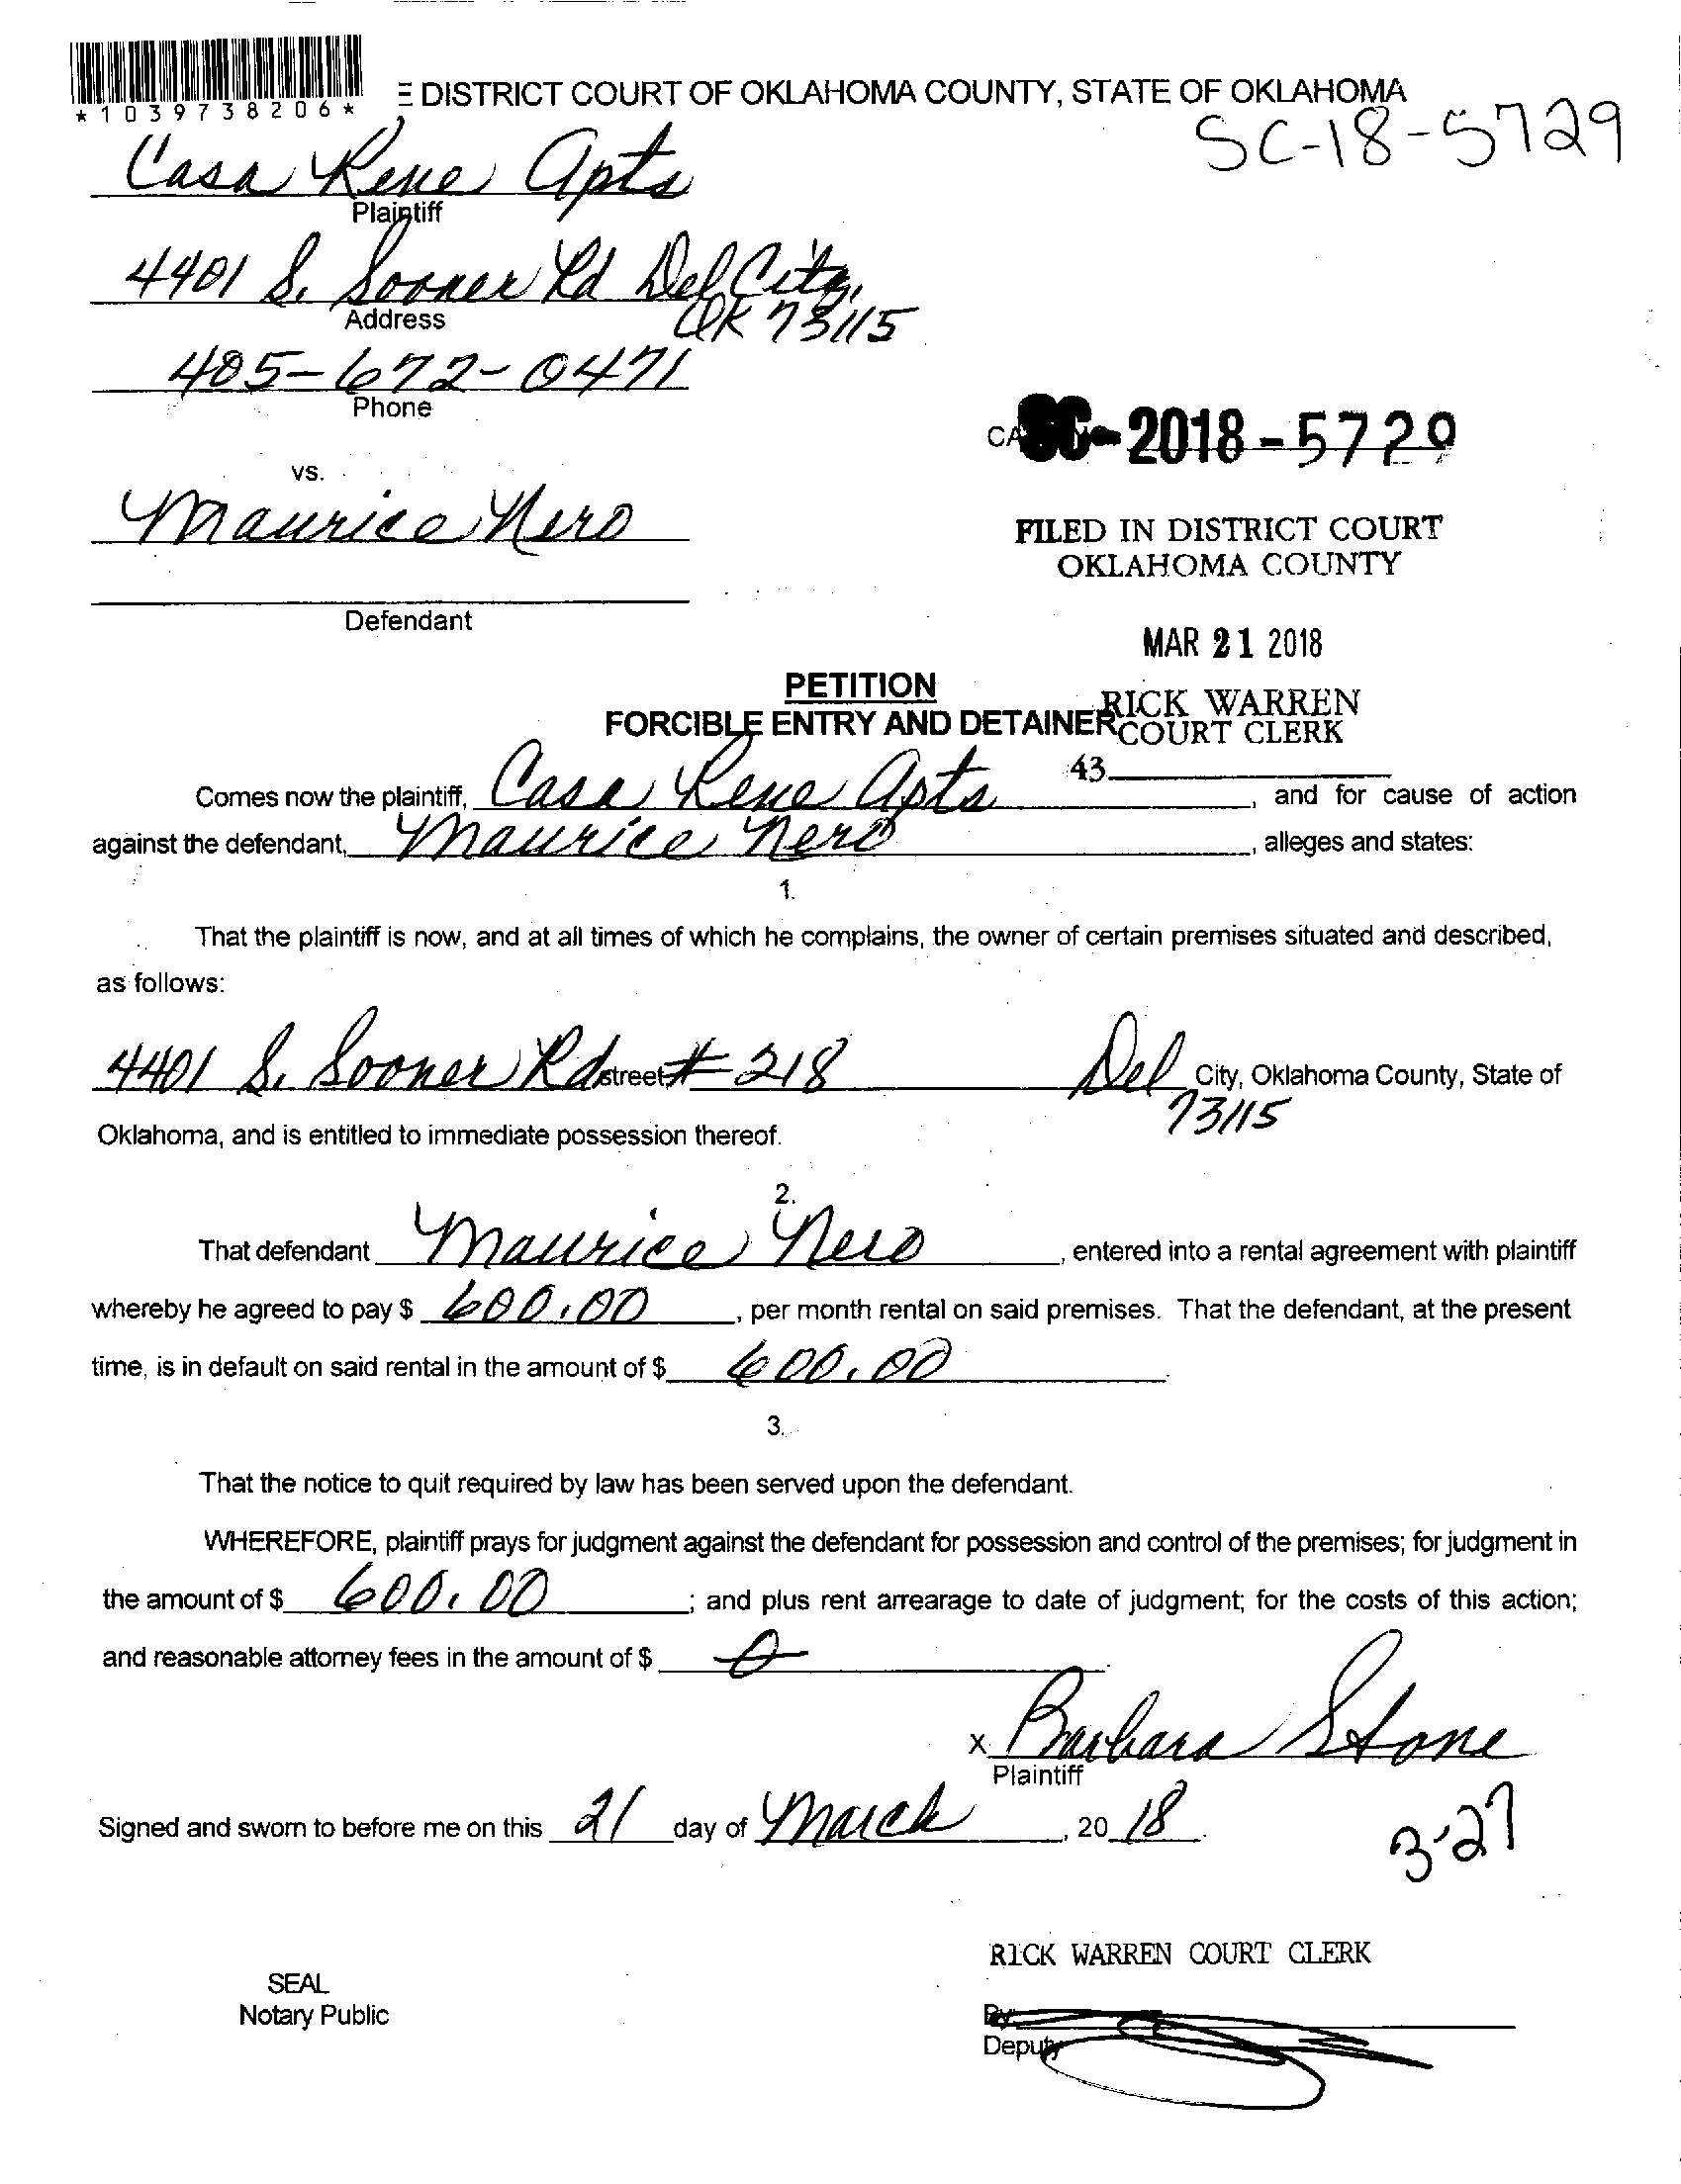 *1039738206*
E DISTRICT COURT OF OKLAHOMA COUNTY, STATE OF OKLAHOMA
SC-18-5729
Casa Rene Apts
Plaintiff
4401 S. Sooner Rd Del City,
OK 73115
Address
405-672-0471
Phone
SC-2018-5729
vs.
Maurice Nero
FILED IN DISTRICT COURT
OKLAHOMA COUNTY
Defendant
MAR 21 2018
PETITION
RICK WARREN
FORCIBLE ENTRY AND DETAINER
COURT CLERK
43
Comes now the plaintiff, Casa Rene Apts, and for cause of action
against the defendant, Maurice Nero, alleges and states:
1.
That the plaintiff is now, and at all times of which he complains, the owner of certain premises situated and described,
as follows:
4401 S. Sooner Rd street # 218 Del City, Oklahoma County, State of
73115
Oklahoma, and is entitled to immediate possession thereof.
2.
That defendant Maurice Nero, entered into a rental agreement with plaintiff
whereby he agreed to pay $ 600.00, per month rental on said premises. That the defendant, at the present
time, is in default on said rental in the amount of $ 600.00.
3.
That the notice to quit required by law has been served upon the defendant.
WHEREFORE, plaintiff prays for judgment against the defendant for possession and control of the premises; for judgment in
the amount of $ 600.00; and plus rent arrearage to date of judgment; for the costs of this action;
and reasonable attorney fees in the amount of $ 0.
x Barbara Stone
Plaintiff
Signed and sworn to before me on this 21 day of March, 20 18.
3-27
RICK WARREN COURT CLERK
SEAL
Notary Public
By:
Deputy